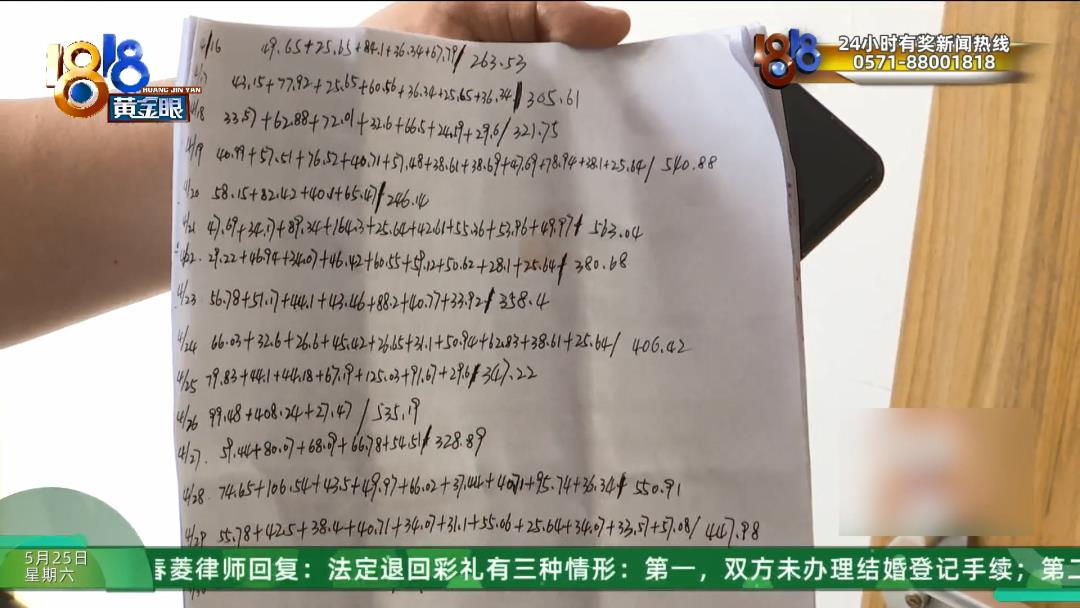 1818
HUANG JIN YAN
黄金眼
1818
24小时有奖新闻热线
0571-88001818
4/16 49.65+25.65+84.1+36.34+67.79/ 263.53
4/17 43.15+77.92+25.65+60.56+36.34+25.65+36.34/ 305.61
4/18 33.57+62.88+72.01+32.6+66.5+24.59+29.6/ 321.75
4/19 40.99+57.51+76.52+40.71+57.48+38.61+38.69+47.69+78.94+28.1+25.64/ 540.88
4/20 58.15+82.42+40.1+65.47/ 246.14
4/21 47.69+34.17+89.34+164.3+25.64+42.61+55.36+53.96+49.97/ 563.04
4/22. 29.22+46.94+34.07+46.42+60.55+59.12+50.62+28.1+25.64/ 380.68
4/23 56.78+51.17+44.1+43.46+88.2+40.77+33.92/ 358.4
4/24 66.03+32.6+26.6+45.42+26.65+31.1+50.94+62.83+38.61+25.64/ 406.42
4/25 79.83+44.1+44.18+67.19+125.03+91.67+29.6/ 347.22
4/26 99.48+408.24+27.47 / 535.19
4/27. 59.44+80.07+68.09+66.78+54.51/ 328.89
4/28. 74.65+106.54+43.5+49.97+66.02+37.44+40.71+95.74+36.34/ 550.91
4/29 55.78+42.5+38.4+40.71+34.07+31.1+55.06+25.64+34.07+33.57+57.08/ 447.98
5月25日
星期六
春菱律师回复：法定退回彩礼有三种情形：第一，双方未办理结婚登记手续；第二